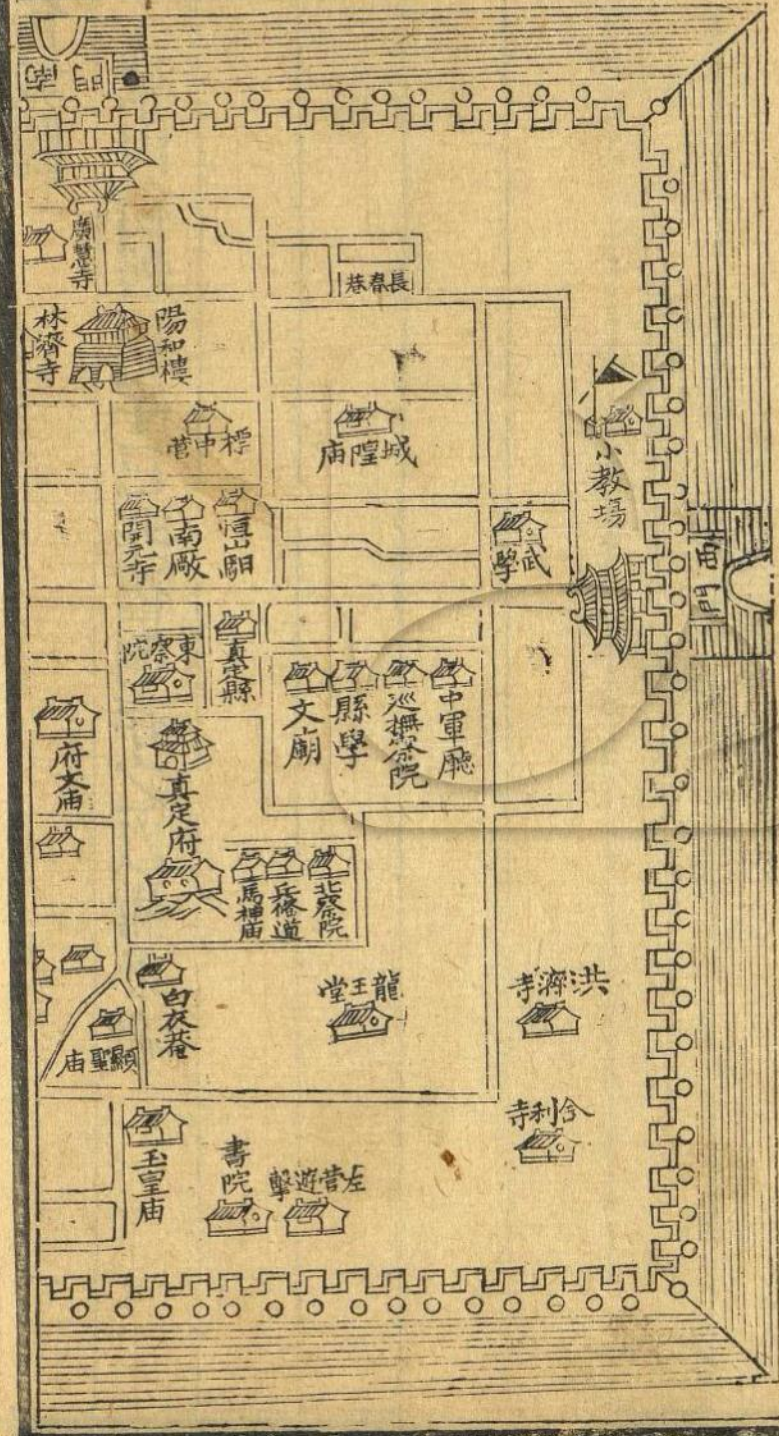 南門
廣慧寺
長春巷
林濟寺
陽和樓
標中营
城隍庙
小教場
開元寺
南厰
恒山馹
武學
西門
東察院
真定縣
文廟
縣學
巡撫察院
中軍廳
府文庙
真定府
馬神庙
兵俻道
北察院
白衣菴
龍王堂
洪濟寺
顯聖庙
舍利寺
玉皇庙
書院
左营遊擊